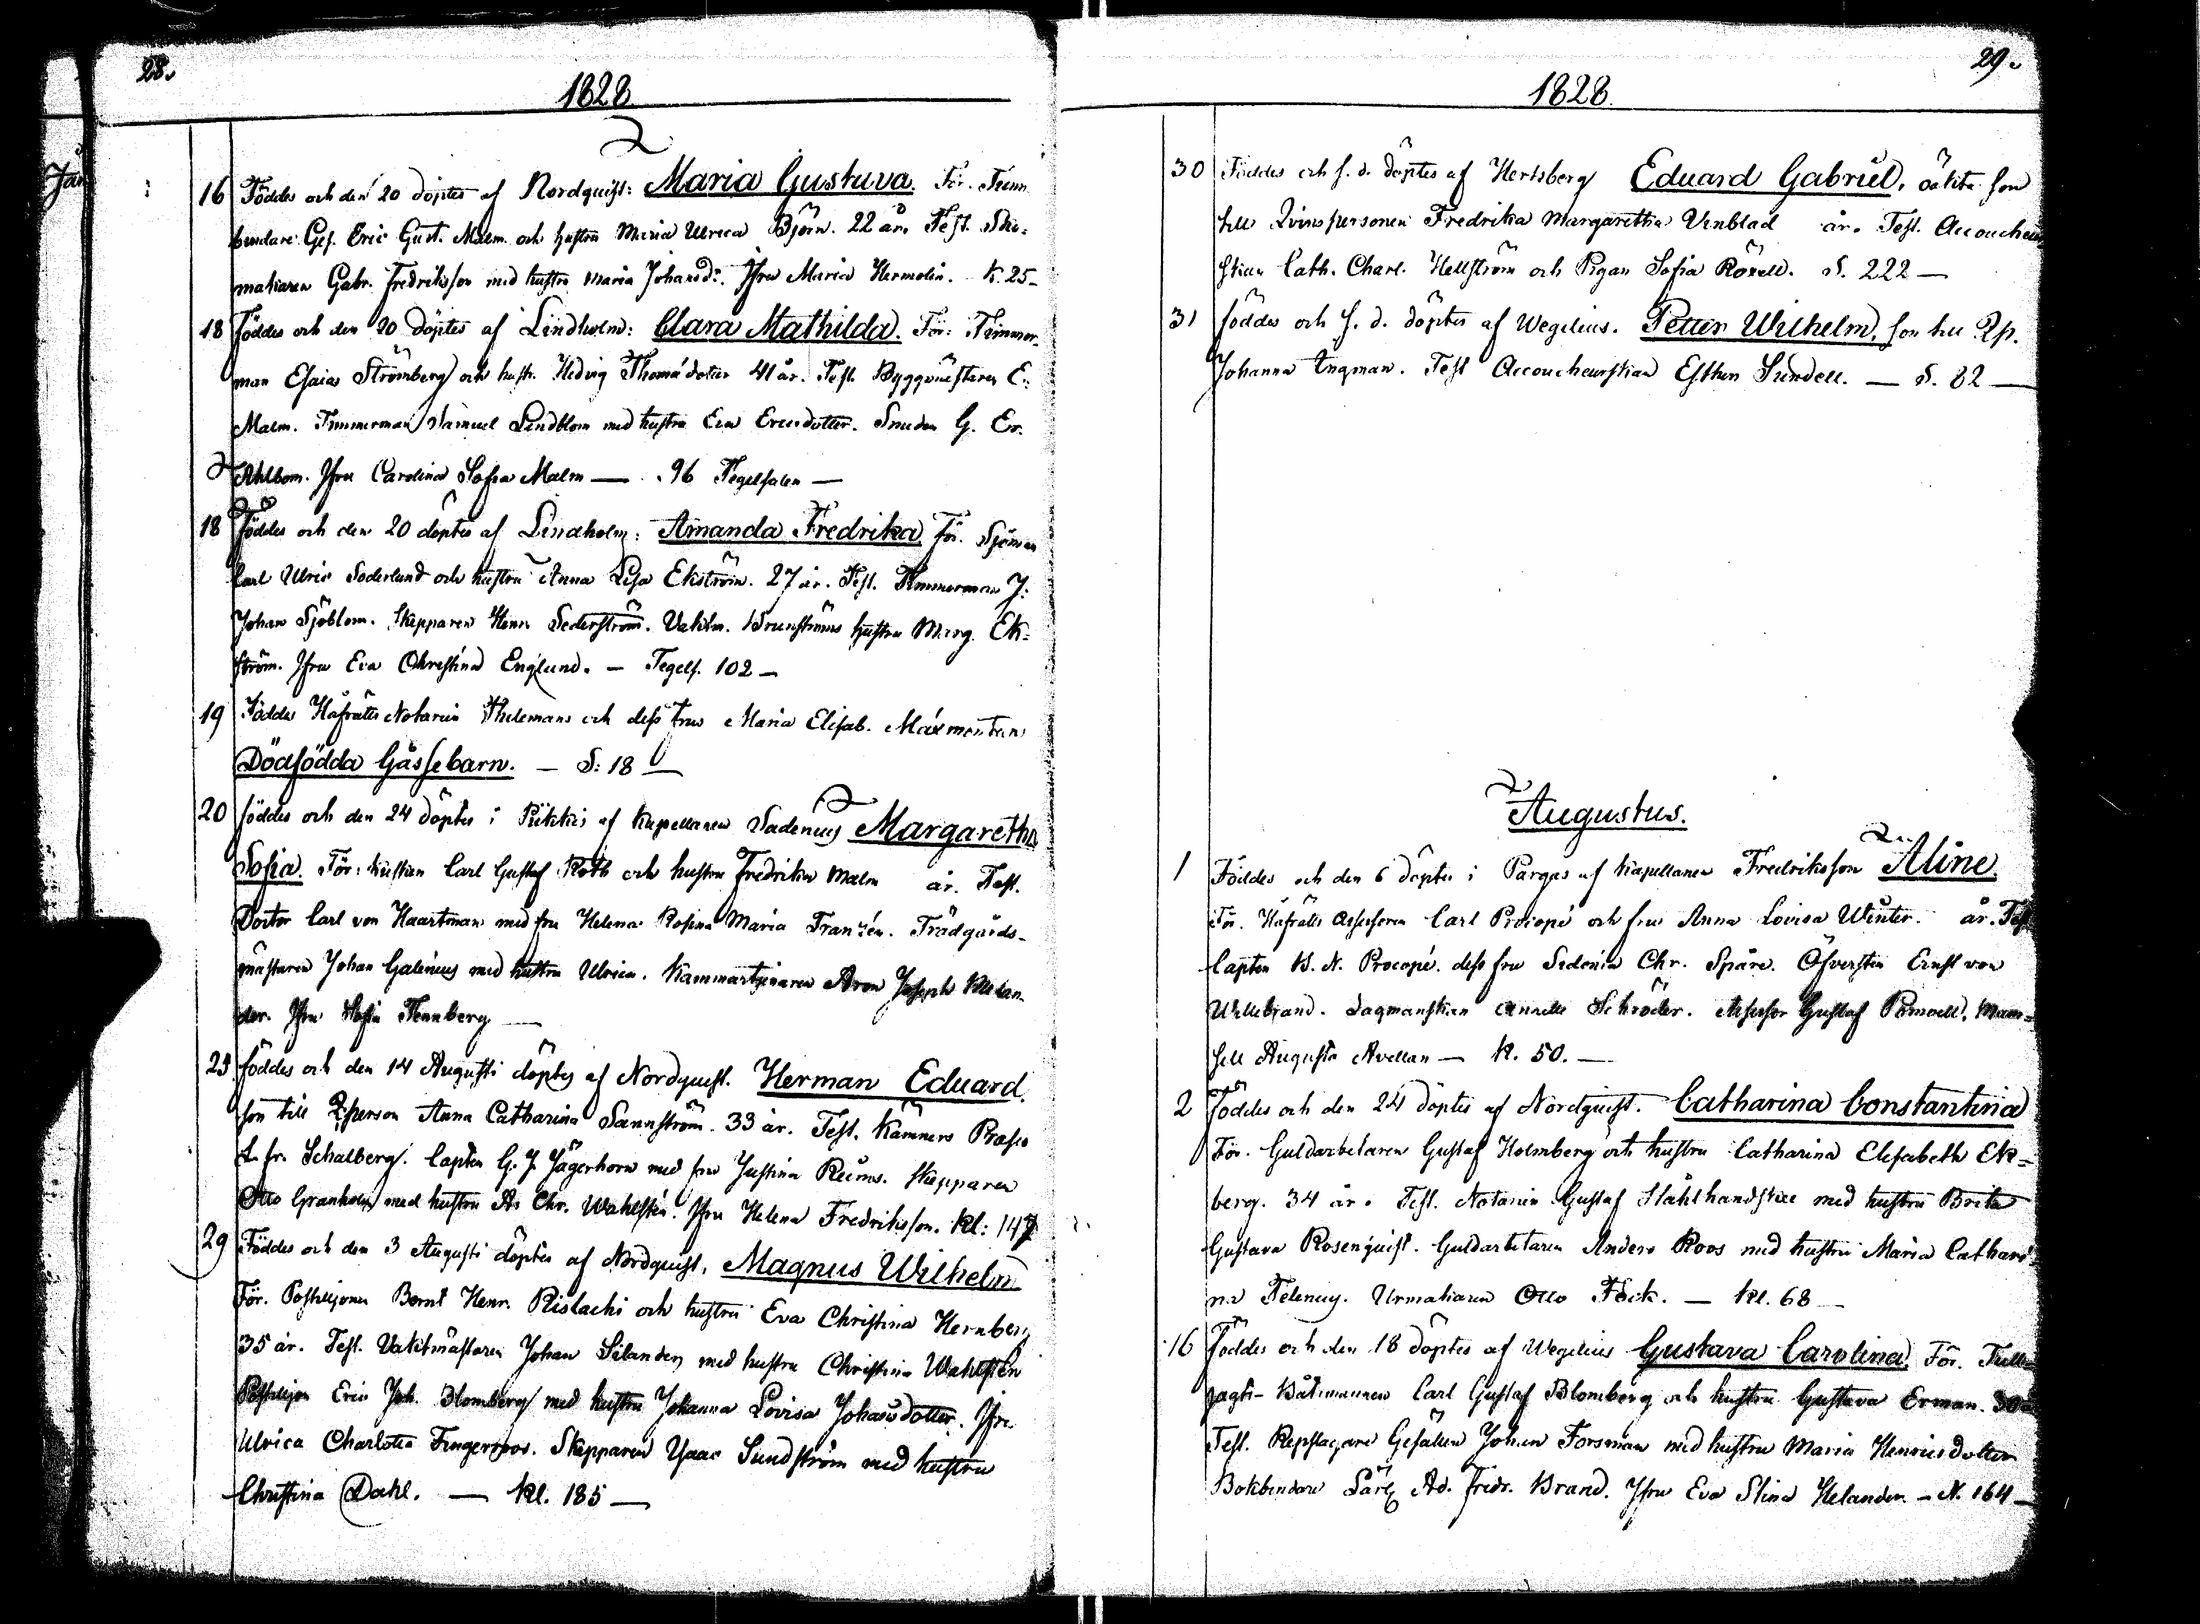 28.
1828
16 Föddes och den 20 döptes af Nordquist: Maria Gustava. För.
bindare Ges. Eric Gust. Malm och hustru Maria Ulrica Björn. 22 år. Test. Sko-
makaren Gabr. Fredriksson med hustru Maria Johansdr. Jfru Maria Hermolin. K. 25 –
18 Föddes och den 20 döptes af Lindholm: Clara Mathilda. För: Timmer-
man Esaias Strömberg och hustr. Hedvig Thomædotter 41 år. Test. Byggmästaren E:
Malm. Timmerman Samuel Lindblom med hustru Eva Ericsdotter. Smeden G. Er.
Ahlbom. Jfru Carolina Sofia Malm — 96 Tegelsalen —
18 Föddes och den 20 döptes af Lindholm: Amanda Fredrika För. Sjöman
Carl Ulric Söderlund och hustru Anna Lisa Ekström. 27 år. Test. Timmerman J:
Johan Sjöblom. Skepparen Henr. Sederström. Vaktm. Brunströms hustru Marg. Ek-
ström. Jfru Eva Christina Englund. – Tegels. 102 –
19 Föddes Hofrätts Notarien Thilemans och dess fru Maria Elisab.
Dödfödda Gåssebarn. – S: 18 –
20 föddes och den 24 döptes i Pikkis af Kapellanen Sadenius Margaretha
Sofia. För: Kusken Carl Gustaf Roth och hustru Fredrika Malm år. Test.
Doctor Carl von Haartman med fru Helena Rosina Maria Franzén. Trädgårds-
mästaren Johan Galenius med hustru Ulrica. Kammartjenaren Aron Joseph
der. Jfru Sofia Tennberg —
23 föddes och den 14 Augusti döptes af Nordquist. Herman Eduard.
son till Qperson Anna Catharina Sannström. 33 år. Test. Kämners
L. fr. Schalberg. Capten G. J. Jägerhorn med fru Justina Reims. Skepparen
Otto Granholm med hustru As Chr. Wahlstén. Jfru Helena Fredriksson. Kl: 147
29 Föddes och den 3 Augusti döptes af Nordquist, Magnus Wilhelm
För. Postiljonen Bernt Henr. Rislachi och hustru Eva Christina Hernberg
35 år. Test. Vaktmästaren Johan Silander med hustru Christina Wahlstén
Postiljon Eric Joh. Blomberg med hustru Johanna Lovisa Johansdotter. Jfru
Ulrica Charlotta Fingerroos. Skepparen Isaac Sundström med hustru
Christina Dahl. — Kl. 185 —
29.
1828.
30 Föddes och s. d. döptes af Hertsberg Eduard Gabriel, oäkta son
till Qvinspersonen Fredrika Margaretha Vinblad år. Test. Accoucheur
skan Cath. Charl. Hellström och Pigan Sofia Roxell. S. 222 —
31 föddes och s. d. döptes af Wegelius. Petter Wilhelm, son till Qp.
Johanna Ingman. Test Accoucheurskan Esther Sundell. — S. 82 —
Augustus.
1 Föddes och den 6 döptes i Pargas af Kapellanen Fredriksson Aline
För. Hofrätts Assessoren Carl Procopé och fru Anna Lovisa Winter. år. Test
Capten B. N. Procopé. dess fru Sidonia Chr. Spåre. Öfversten Ernst von
Willebrand. Lagmanskan Schröder. Assessor Gustaf Mam-
sell Augusta Avellan — K. 50. —
2 Föddes och den 24 döptes af Nordquist. Catharina Constantina
För. Guldarbetaren Gustaf Holmberg och hustru Catharina Elisabeth Ek-
berg. 34 år. Test. Notarien Gustaf Stålhandske med hustru Brita
Gustava Rosenquist. Guldarbetaren Anders Roos med hustru Maria Cathari-
na Felenius. Urmakaren Otto Fock. — Kl. 68 —
16 Föddes och den 18 döptes af Wegelius Gustava Carolina. För. Tull
jagts-Båtsmannen Carl Gustaf Blomberg och hustru Gustava Erman. 30
Test. Repslagare Gesällen Johan Forsman med hustru Maria Henricsdotter
Bokbindare Lärl. Ad. Fredr. Brand. Jfru Eva Stina Helander. – N. 164 –